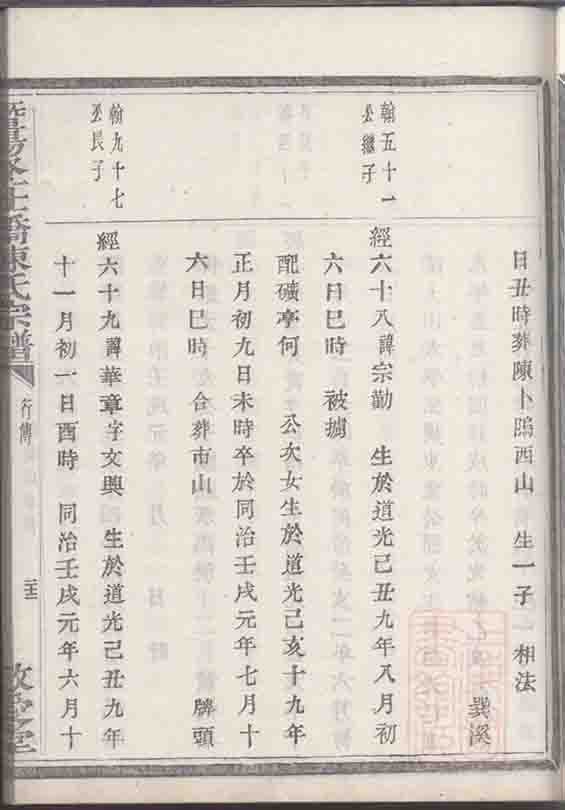 日丑時葬陳卜隖西山 生一子 相法
巽溪
翰五十一
公繼子
經六十八諱宗勤 生於道光己丑九年八月初
六日巳時 被擄
配礦亭何 公次女生於道光己亥十九年
正月初九日未時卒於同治壬戌元年七月十
六日巳時 合葬市山 牌頭
翰九十七
公長子
經六十九諱華章字文興 生於道光己丑九年
十一月初一日酉時 同治壬戌元年六月十
橋陳氏宗譜
行傳